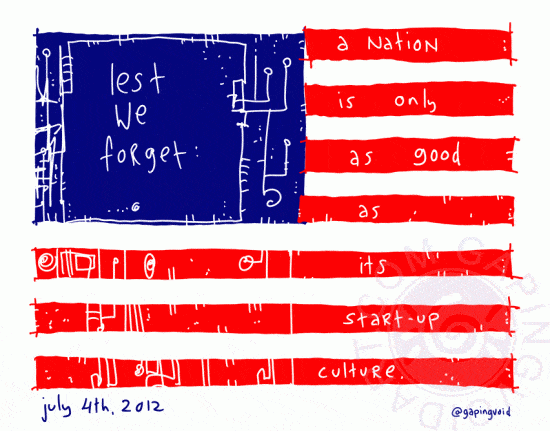 lest
we
forget:
a NATiON
is only
as good
as
its
start-up
culture.
july 4th, 2012
@gapingvoid